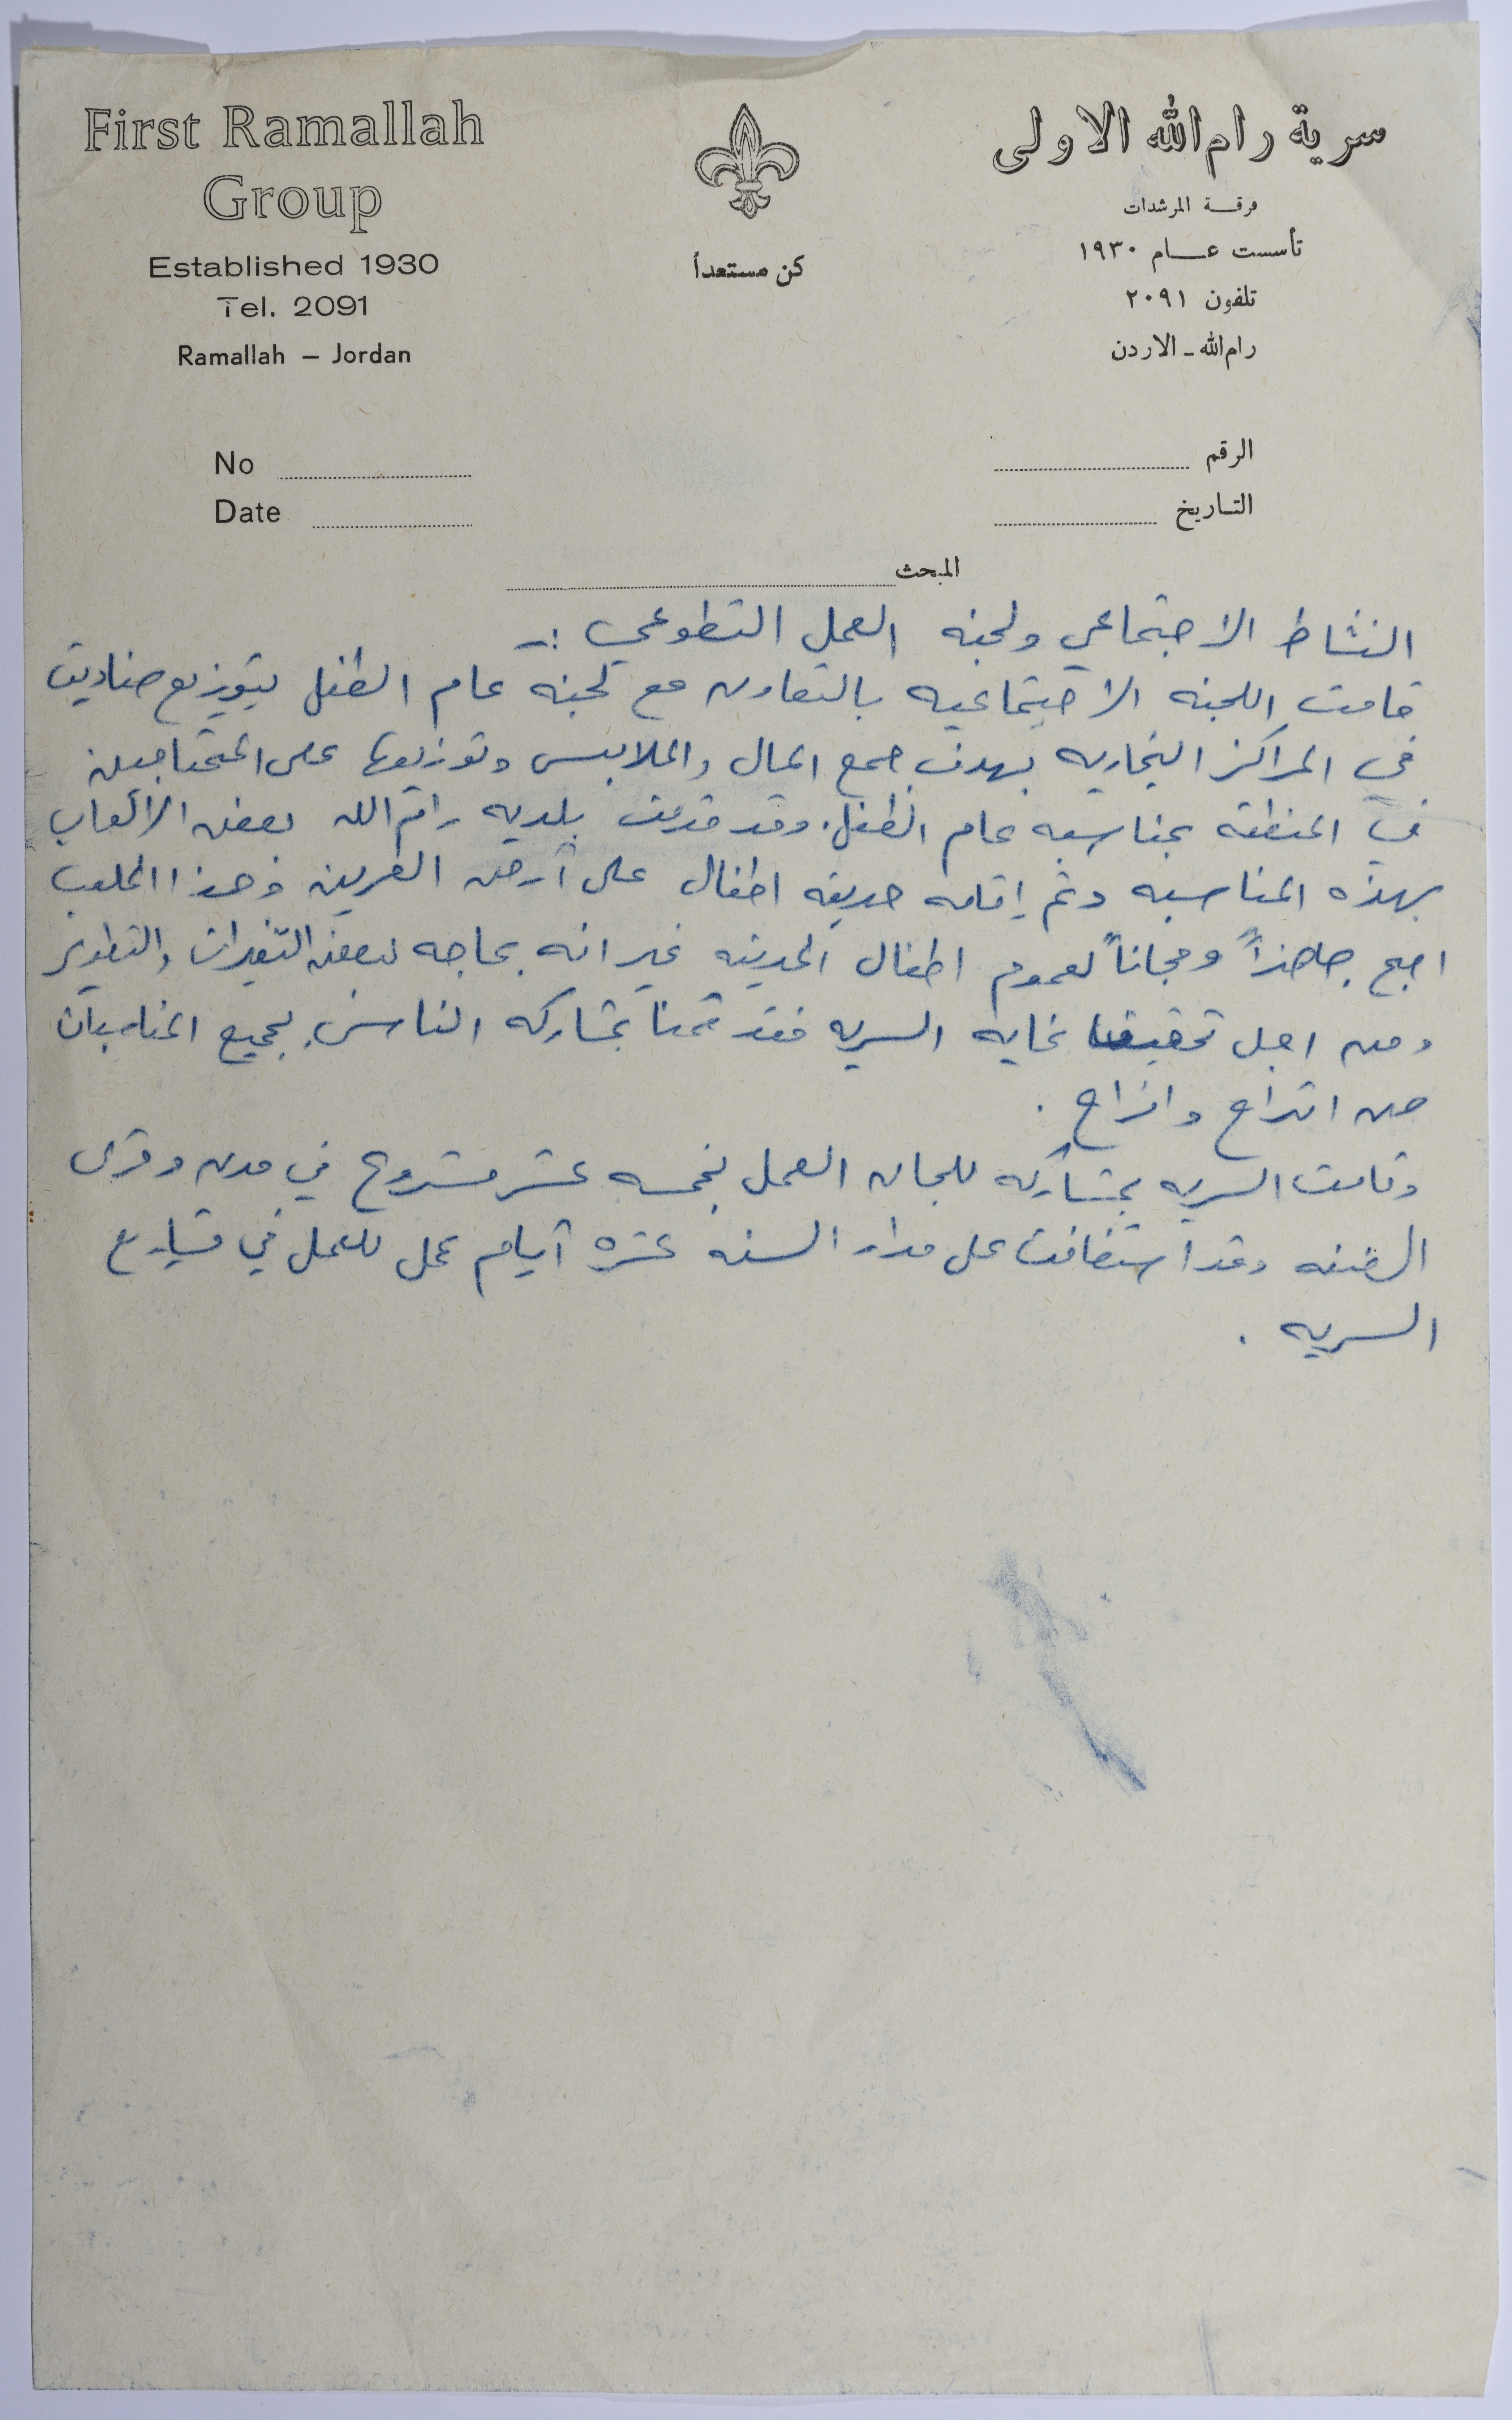 First Ramallah
Group
Established 1930
Tel. 2091
Ramallah – Jordan
كن مستعداً
سرية رام الله الاولى
فرقة المرشدات
تأسست عام ١٩٣٠
تلفون ٢٠٩١
رام الله - الاردن
No
Date
الرقم
التاريخ
المبحث
النشاط الاجتماعي ولجنه العمل التطوعي :-
قامت اللجنه الاجتماعيه بالتعاون مع لجنه عام الطفل بتوزيع صناديق
في المراكز التجاريه بهدف جمع المال والملابس وتوزيعها على المحتاجين
في المنطقه بمناسبه عام الطفل. وقد قدمت بلديه رام الله بعض الالعاب
بهذه المناسبه وتم إقامه حديقه اطفال على أرض الفرين وهذا الملعب
اصبح جاهزاً ومجاناً لعموم اطفال المدينه غير انه بحاجه لبعض التغيرات والتطوير
ومن اجل تحقيقا غايه السريه فقد قمنا بمشاركه الناس بجميع المناسبات
من اتراح وافراح .
وقامت السريه بمشاركه للجان العمل بخمسه عشر مشروع في مدن وقرى
الضفه وقد استضافت على مدار السنه عشره أيام عمل للعمل في مشاريع
السريه .